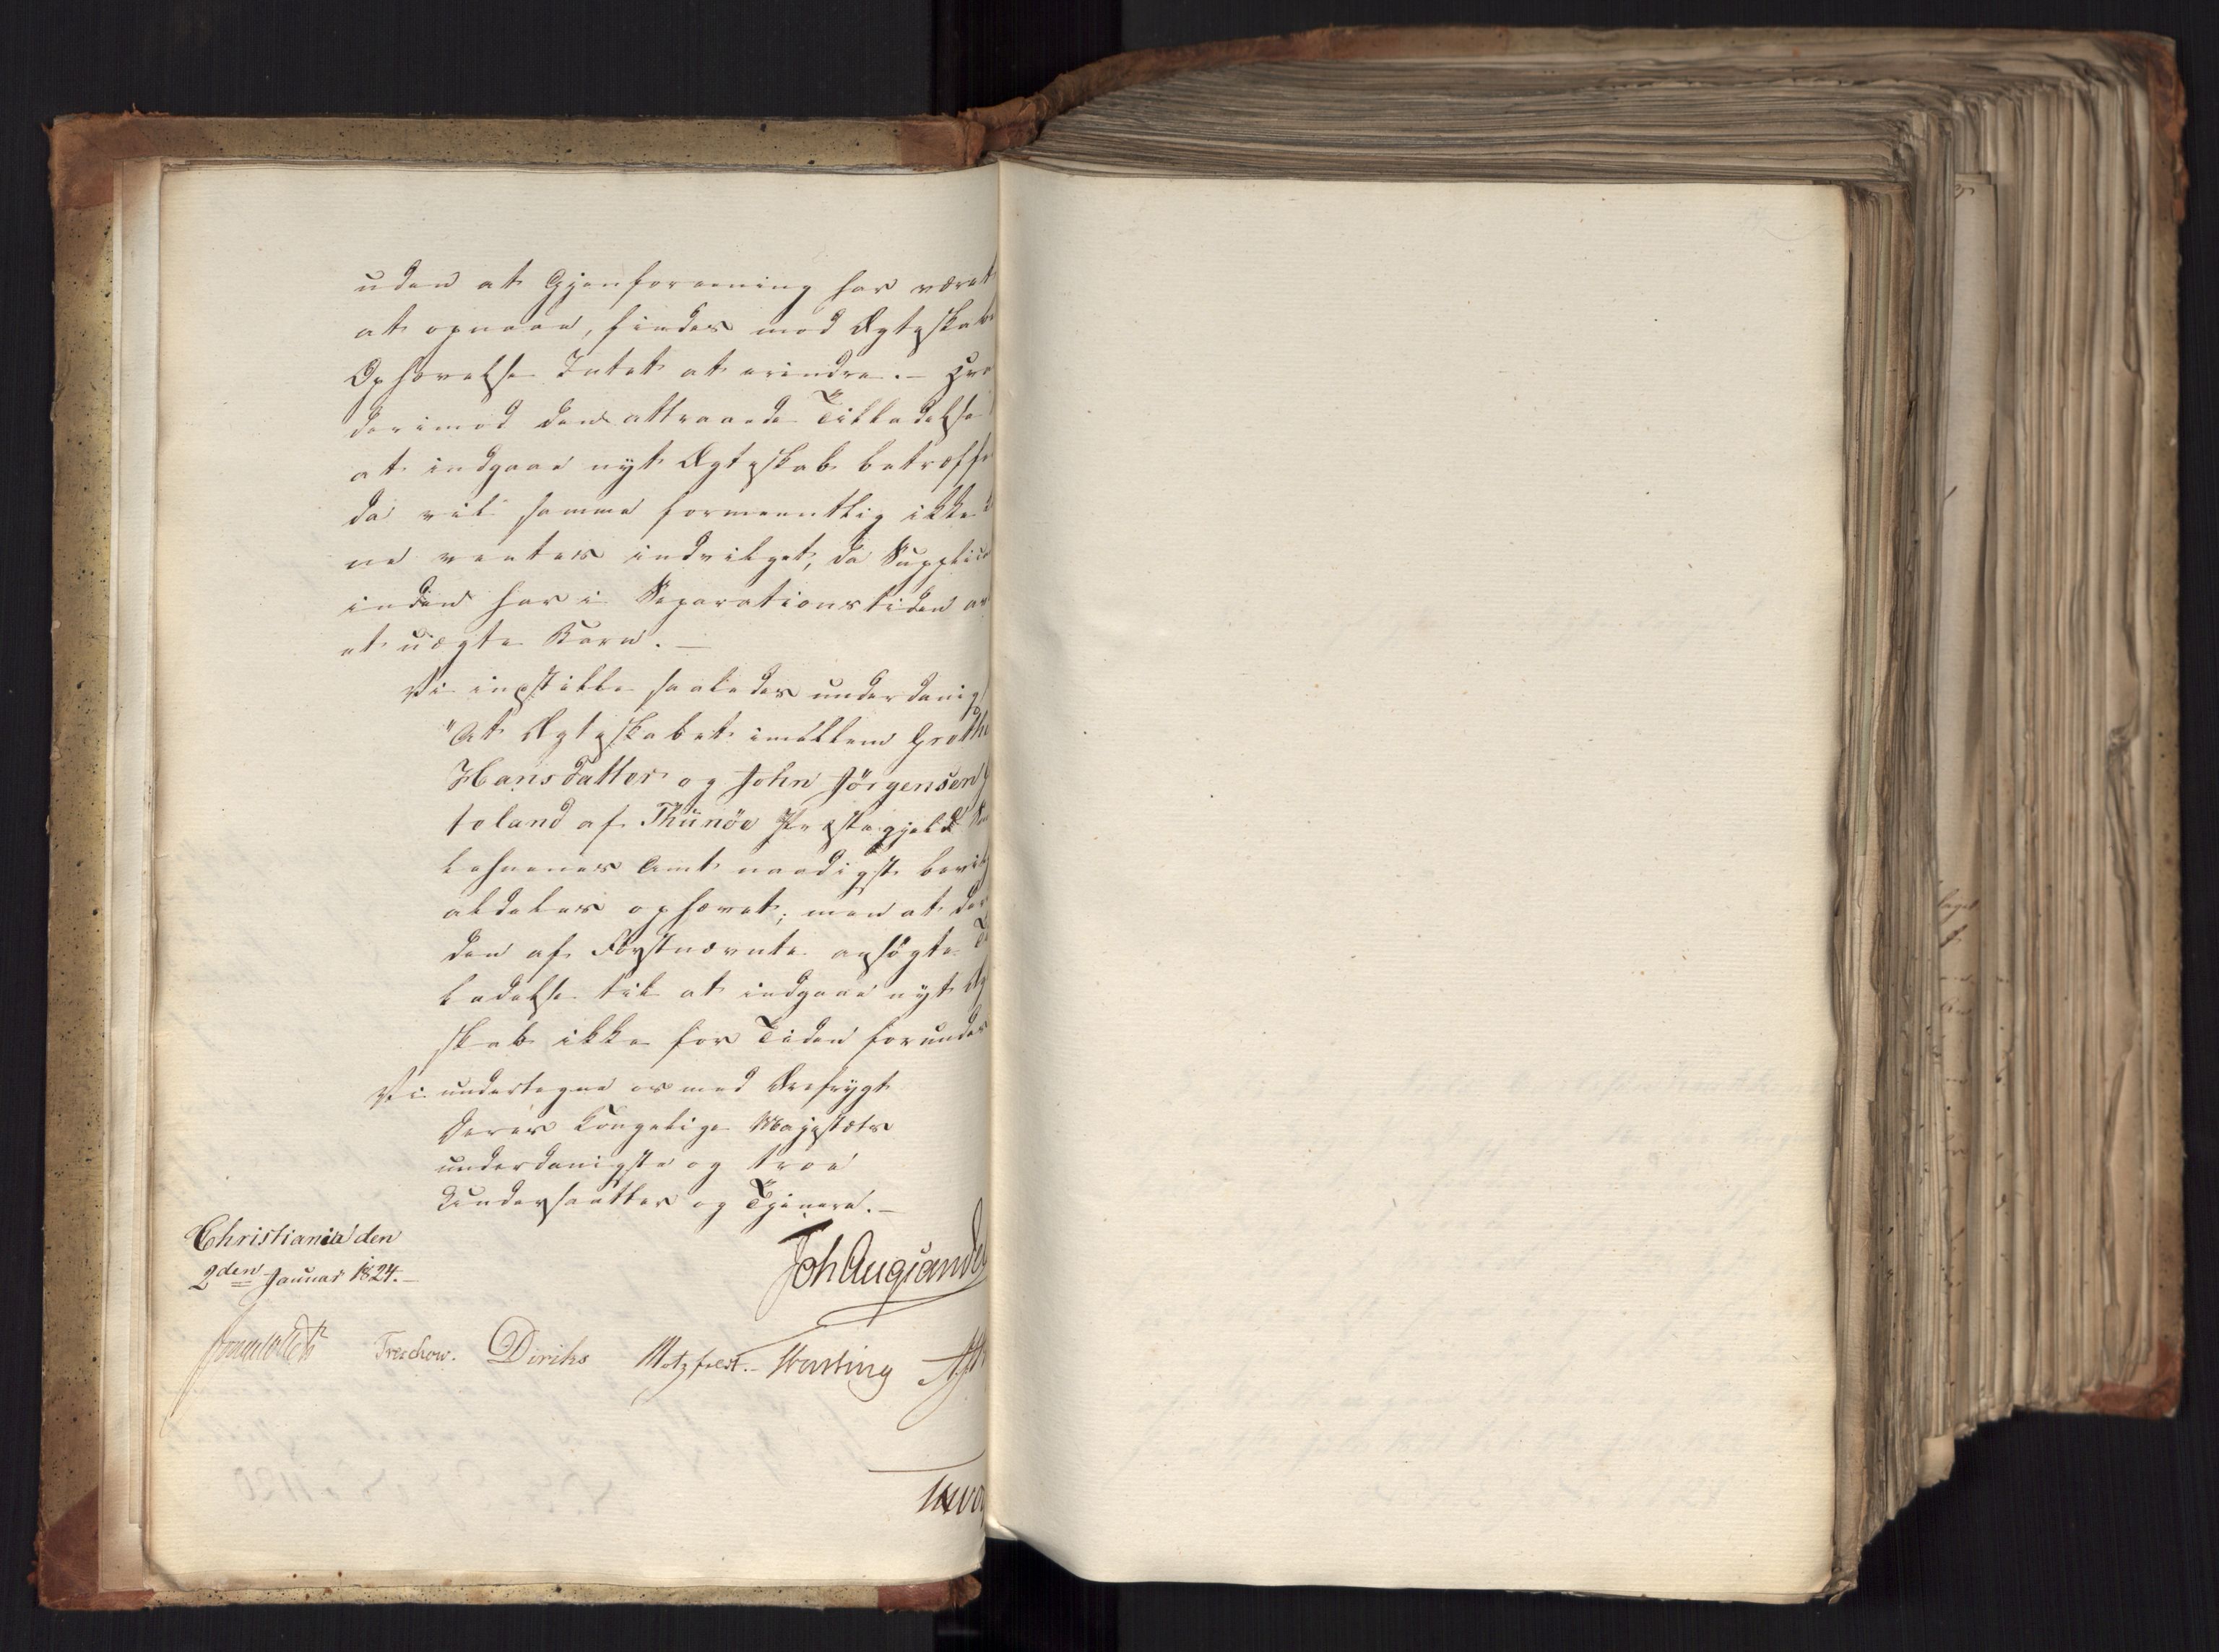 uden at Gjenforeening har været
at opnaae, findes mod Ægteskabe
Ophævelse Intet at erindre. - Hva
derimod den attraaede Tilladelse
at indgaae nyt Ægteskab betræffe
da vil samme formeentlig ikke
ne ventes indvilget, da Supplica
inden har i Separationstiden
et uægte Barn. -
Vi indstille saaledes underdanig
"At Ægteskabet imellem Grethe
Hansdatter og John Jörgensen
toland af Thünöe Præstegjeld
lehnenes Amt naadigst bevil
aldeles ophævet; men at der
den af Förstnævnte ansögte
ladelse til at indgaae nyt Æg
skab ikke for Tiden forundes
Vi undertegne os med Ærefrygt
Deres Kongelige Majestæts
underdanigste og troe
Undersaatter og Tjenere. -
Christiania den
2den Januar 1824. -
Joh Aug Sande
Treschow. Diriks Motzfeldt. - Hersting